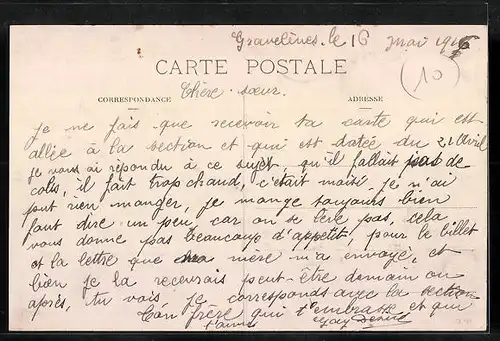 Gravelines. le 16 mai 1916
(10)
CARTE POSTALE
CORRESPONDANCE
ADRESSE
Chère sœur.
Je ne fais que recevoir ta carte qui est
allée à la section et qui est datée du 21 Avril
je vous ai répondu à ce sujet qu'il fallait pas de
colis, il fait trop chaud, c'était moisi. Je n'ai
put rien manger, je mange toujours bien
faut dire un peu, car on se lève pas, cela
vous donne pas beaucoup d'appétit, pour le billet
et la lettre que mère m'a envoyé, et
bien je la recevrais peut-être demain ou
après, tu vois je corresponds avec la section
Ton frère qui t'embrasse et qui
t'aime